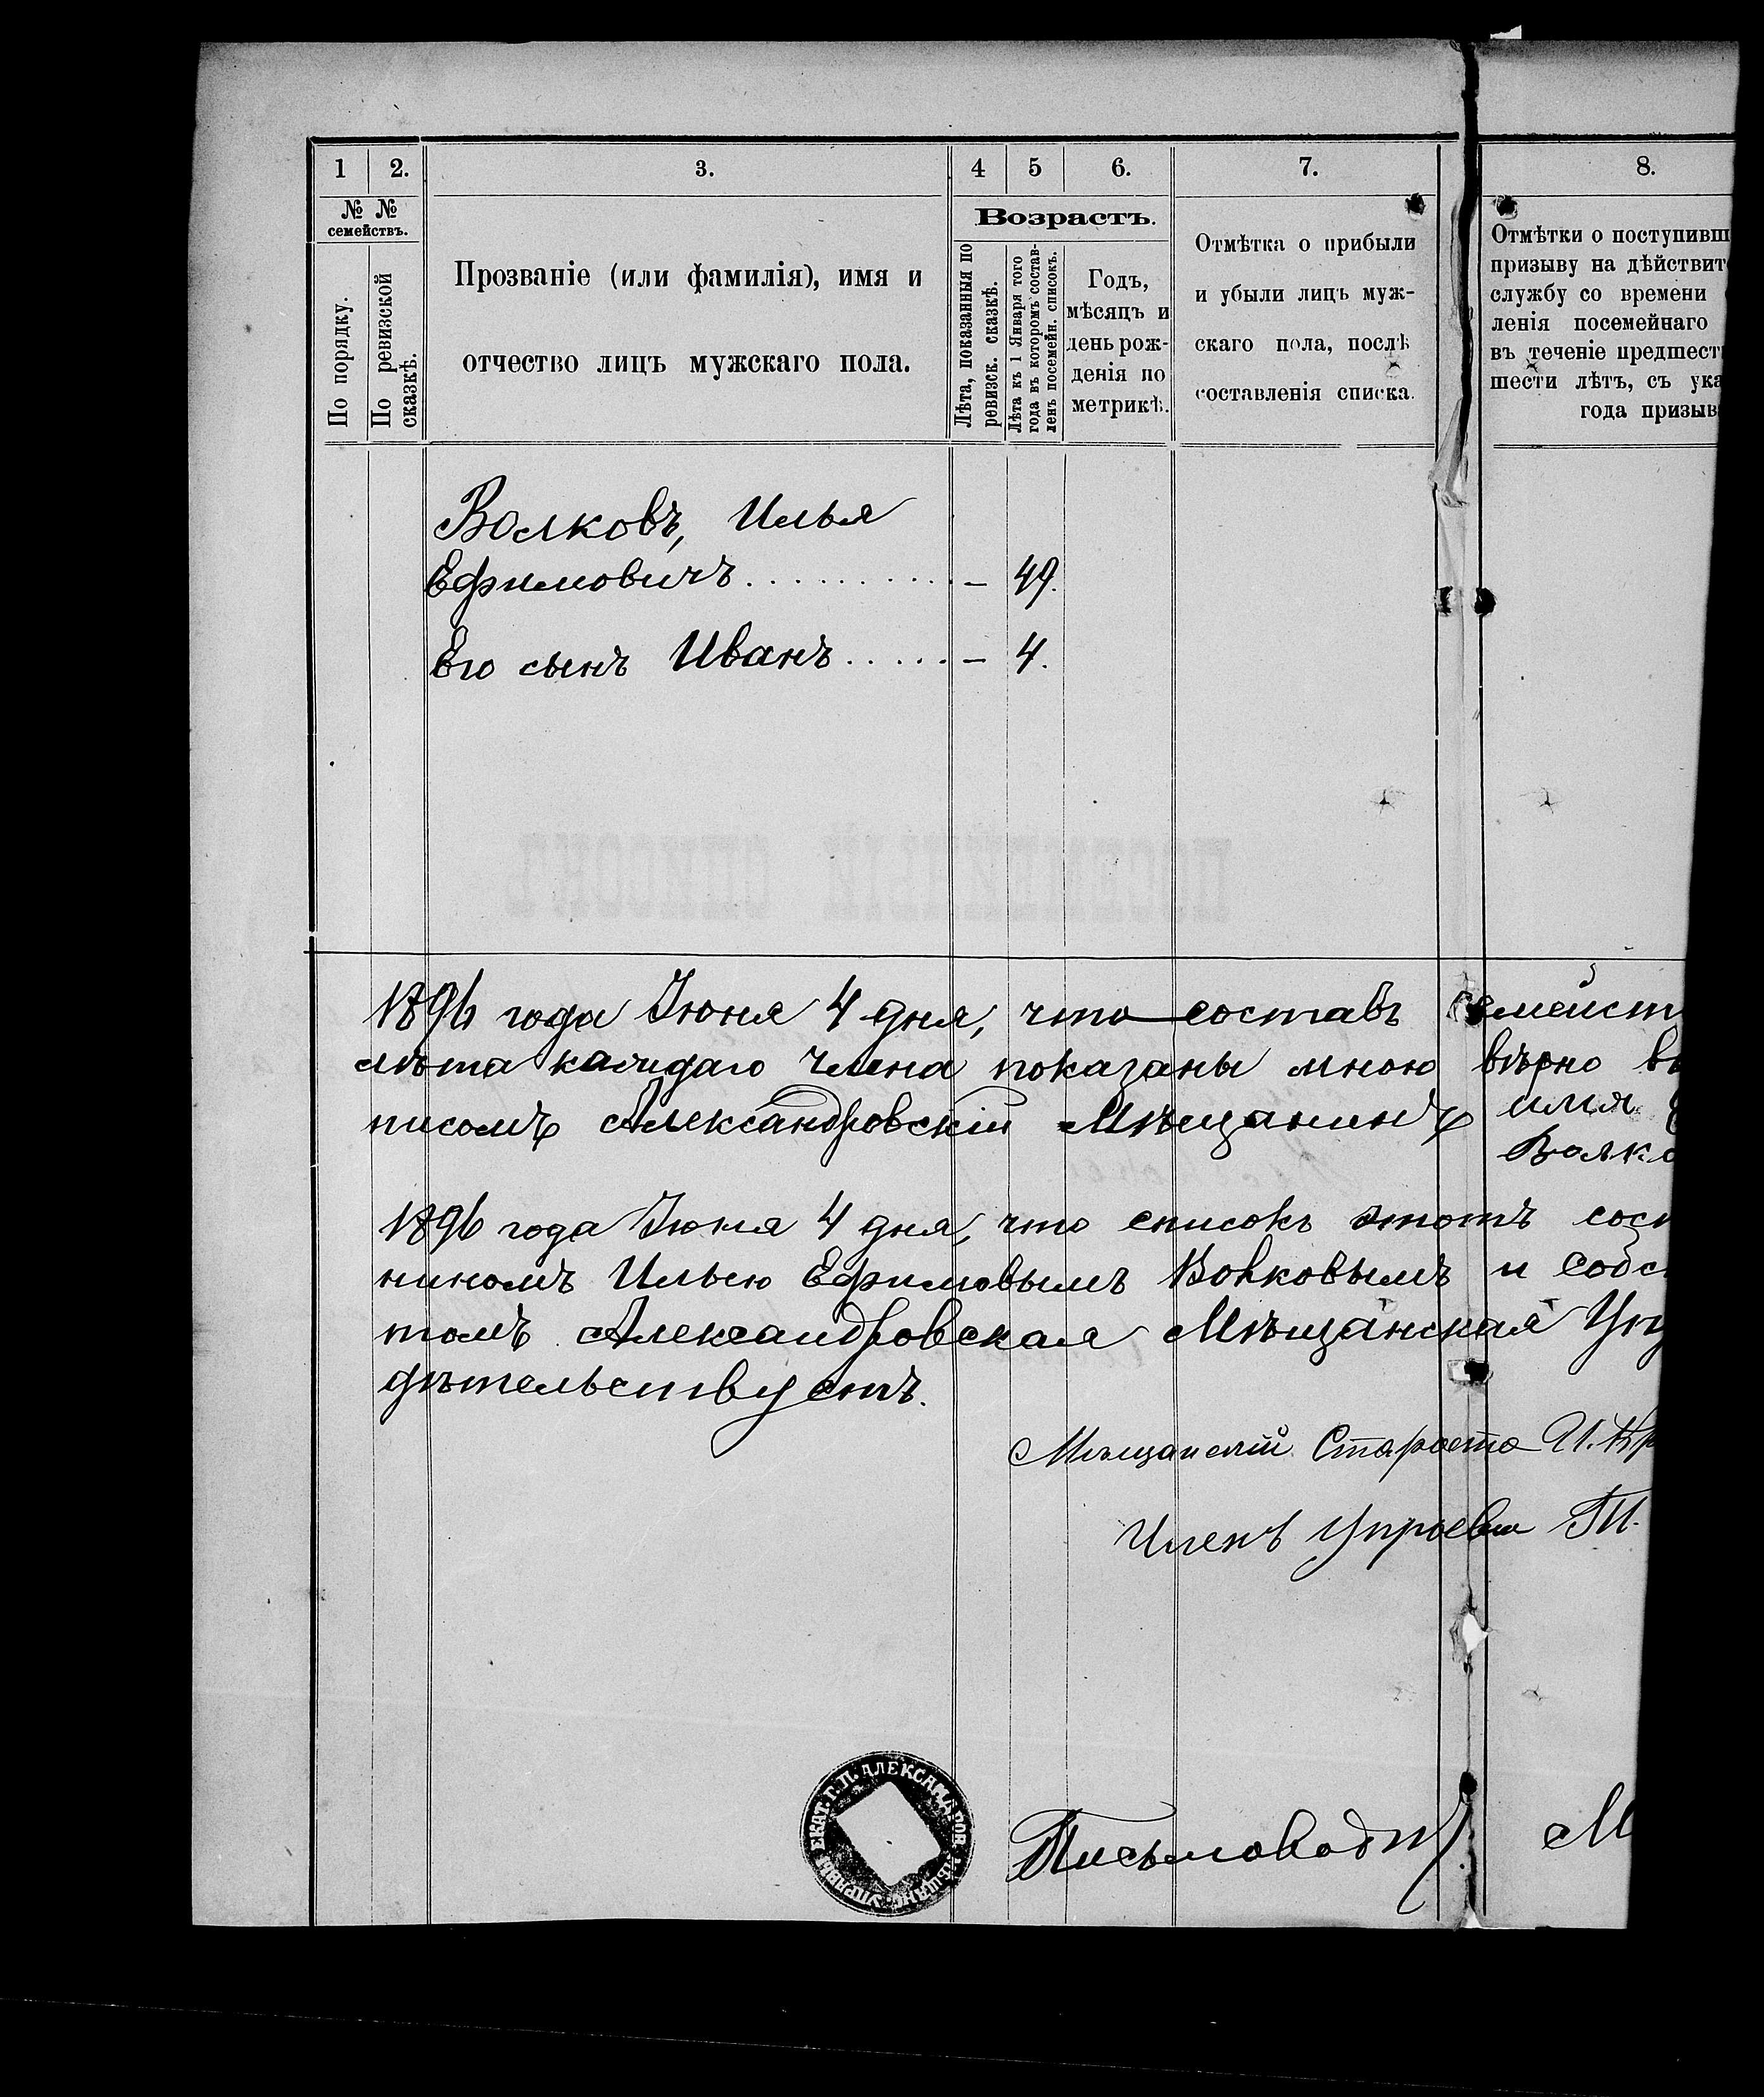 1 2. 3. 4 5 6. 7. 8.
№ №
семействъ.
По порядку.
По ревизской
сказкѣ.
Прозваніе (или фамилія), имя и
отчество лицъ мужскаго пола.
Возрастъ.
Лѣта, показанныя по
ревизск. сказкѣ.
Лѣта къ 1 Января того
года въ которомъ состав-
ленъ посемейн. списокъ.
Годъ,
мѣсяцъ и
день рож-
денія по
метрикѣ.
Отмѣтка о прибыли
и убыли лицъ муж-
скаго пола, послѣ
составленія списка.
Отмѣтки о поступивш
призыву на дѣйствит
службу со времени
ленія посемейнаго
въ теченіе предшест
шести лѣтъ, съ ука
года призыв
Волковъ, Илья
Ефимовичъ.......... – 49.
Его сынъ Иванъ..... – 4.
ПОСЕМЕЙНЫЙ СПИСОКЪ
1896 года Іюня 4 дня, что составъ семейст
лѣта каждаго члена показаны мною вѣрно въ
писомъ Александровскій Мѣщанинъ имя
Волко
1896 года Іюня 4 дня, что списокъ этотъ сост
ниномъ Ильею Ефимовымъ Волковымъ и собст
томъ Александровская Мѣщанская Упр
дѣтельствуетъ.
Мѣщанскій Староста И. Кр
Членъ Управы
ЕКАТ. Г. П. АЛЕКСАНДРОВ. МѢЩАНС. УПРАВЫ
Письмовод М